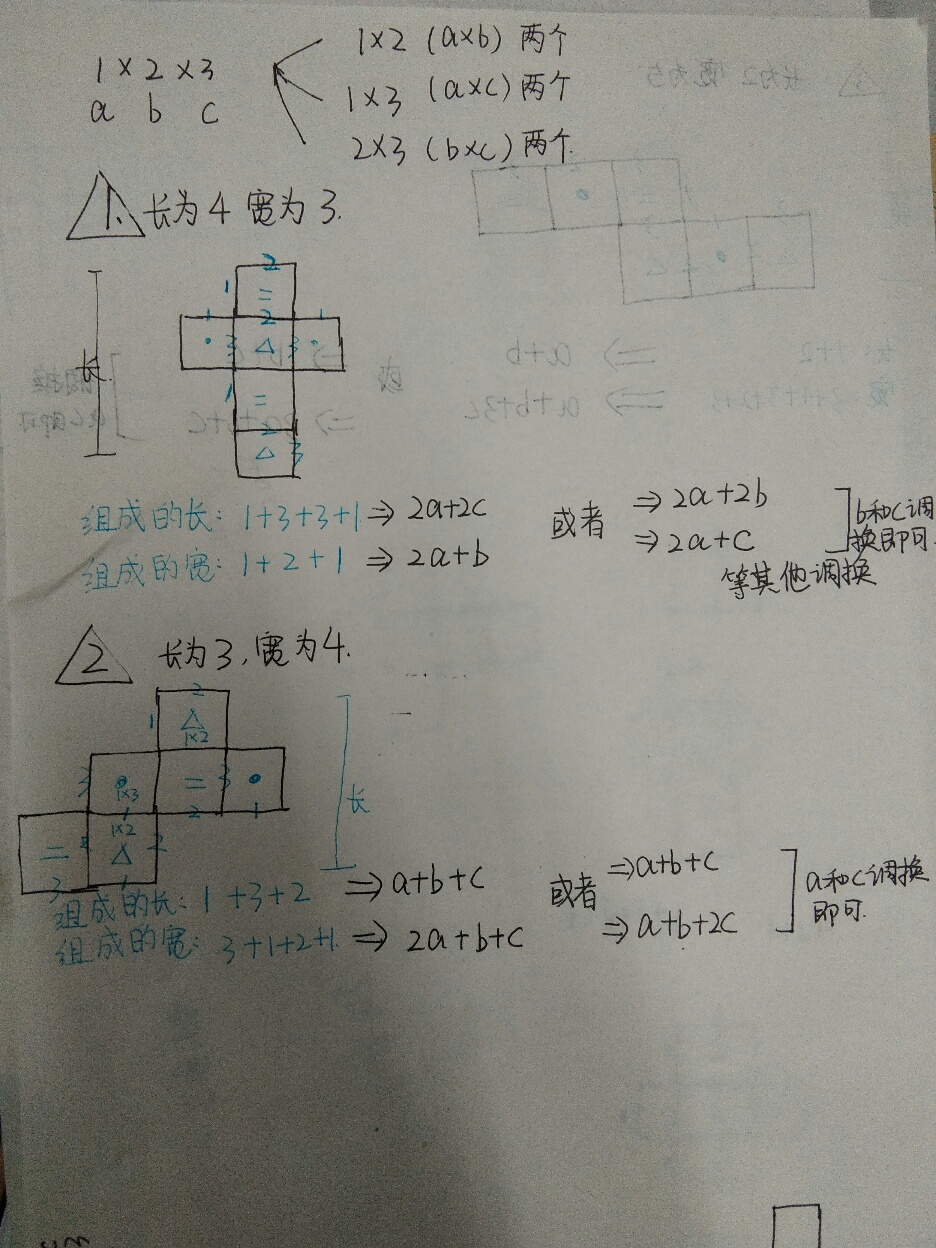 1×2×3
a b c
1×2 (a×b) 两个
1×3 (a×c) 两个
2×3 (b×c) 两个.
1. 长为4 宽为3.
2
1 =
1 2 1
· 3 △ 3 ·
长
1 =
2
△ 3
组成的长: 1+3+3+1 ⇒ 2a+2c 或者 ⇒ 2a+2b
组成的宽: 1+2+1 ⇒ 2a+b ⇒ 2a+c
b和c调
换即可.
等其他调换
2 长为3,宽为4.
2
1 △
1×2
3 · = 3 ·
1×3
1 2 1
长
1×2
= △ 2
3 1
组成的长: 1+3+2 ⇒ a+b+c 或者 ⇒ a+b+c
组成的宽: 3+1+2+1. ⇒ 2a+b+c ⇒ a+b+2c
a和c调换
即可.